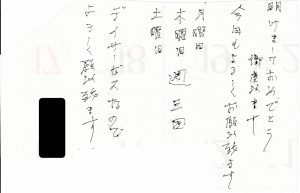 明けましておめでとう
御座います
今日もよろしくお願い致します
月曜日
木曜日 週三回
土曜日
デイサービスなので
よろしく願い致ます